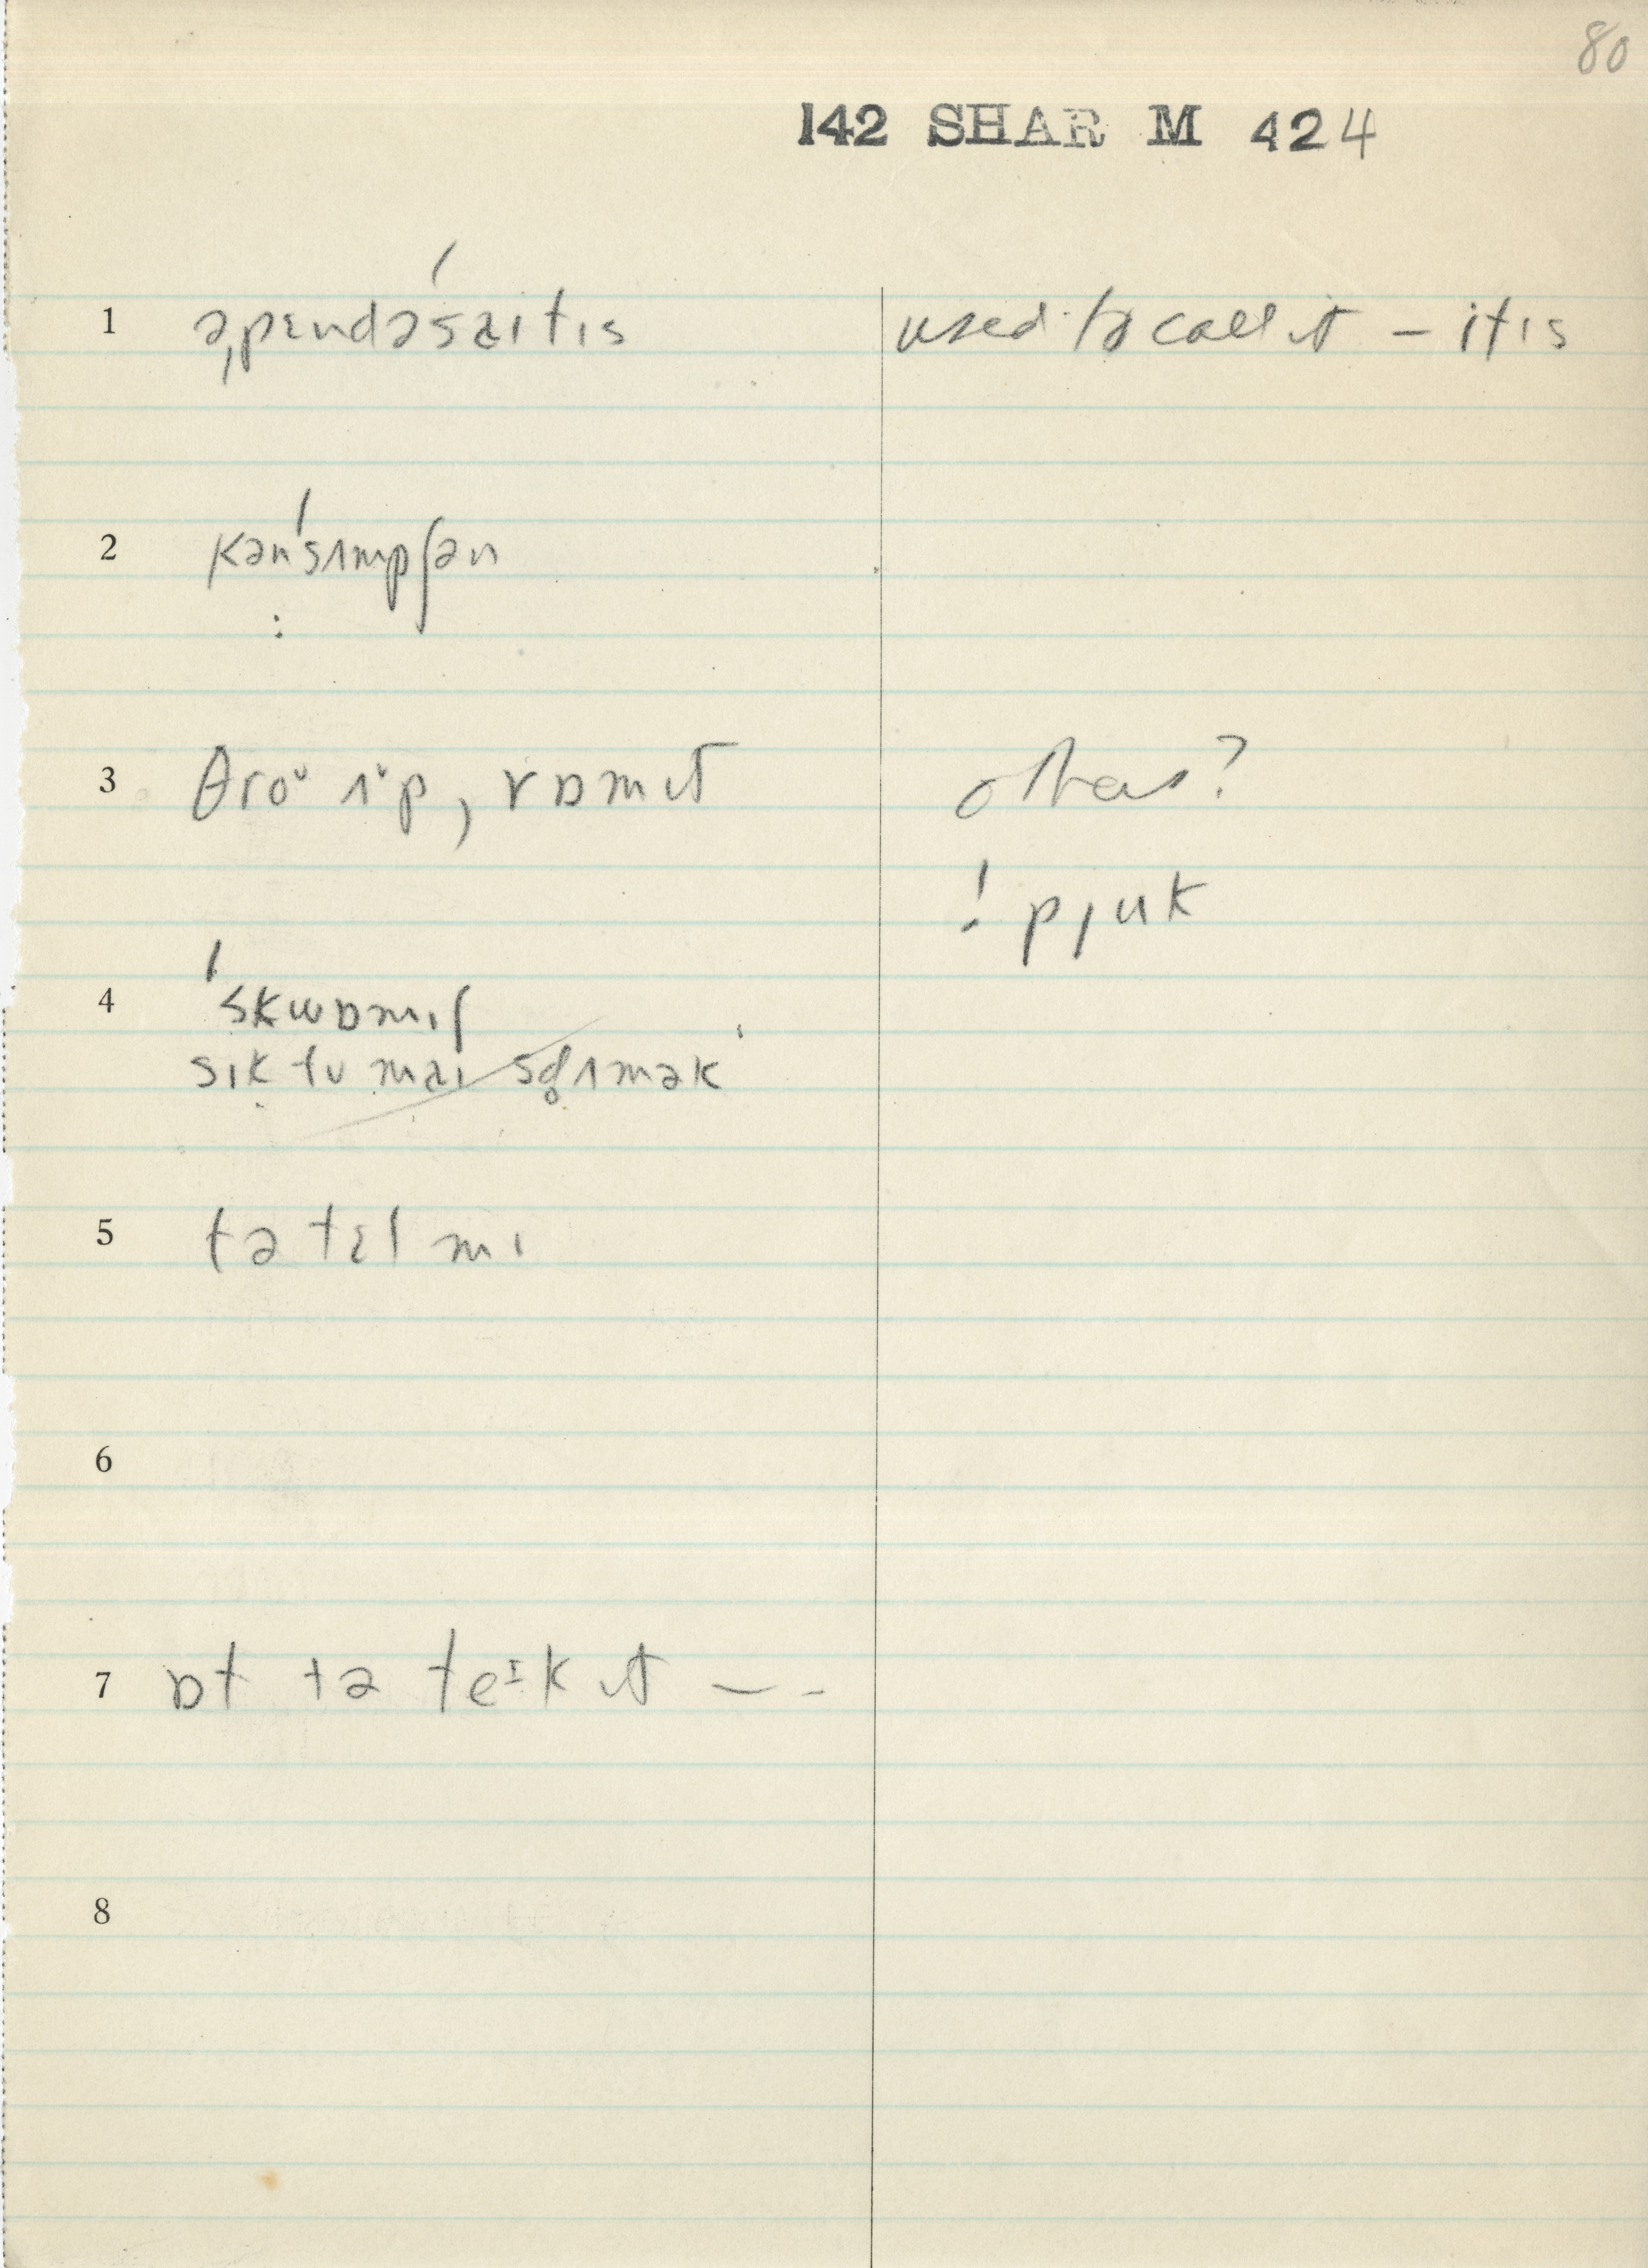 80
142 SHAR M 424
1 əˌpɛndəˈsaɪtɪs used to call it – itis
2 kənˈsʌmpʃən
:
3 θroʊ ʌp, vɒmɪt others?
! pjuk
4 ˈskwɒmɪʃ
sɪk tu maɪ stʌmək
5 tə tɛl mɪ
6
7 ɒt tə teɪk ɪt — -
8